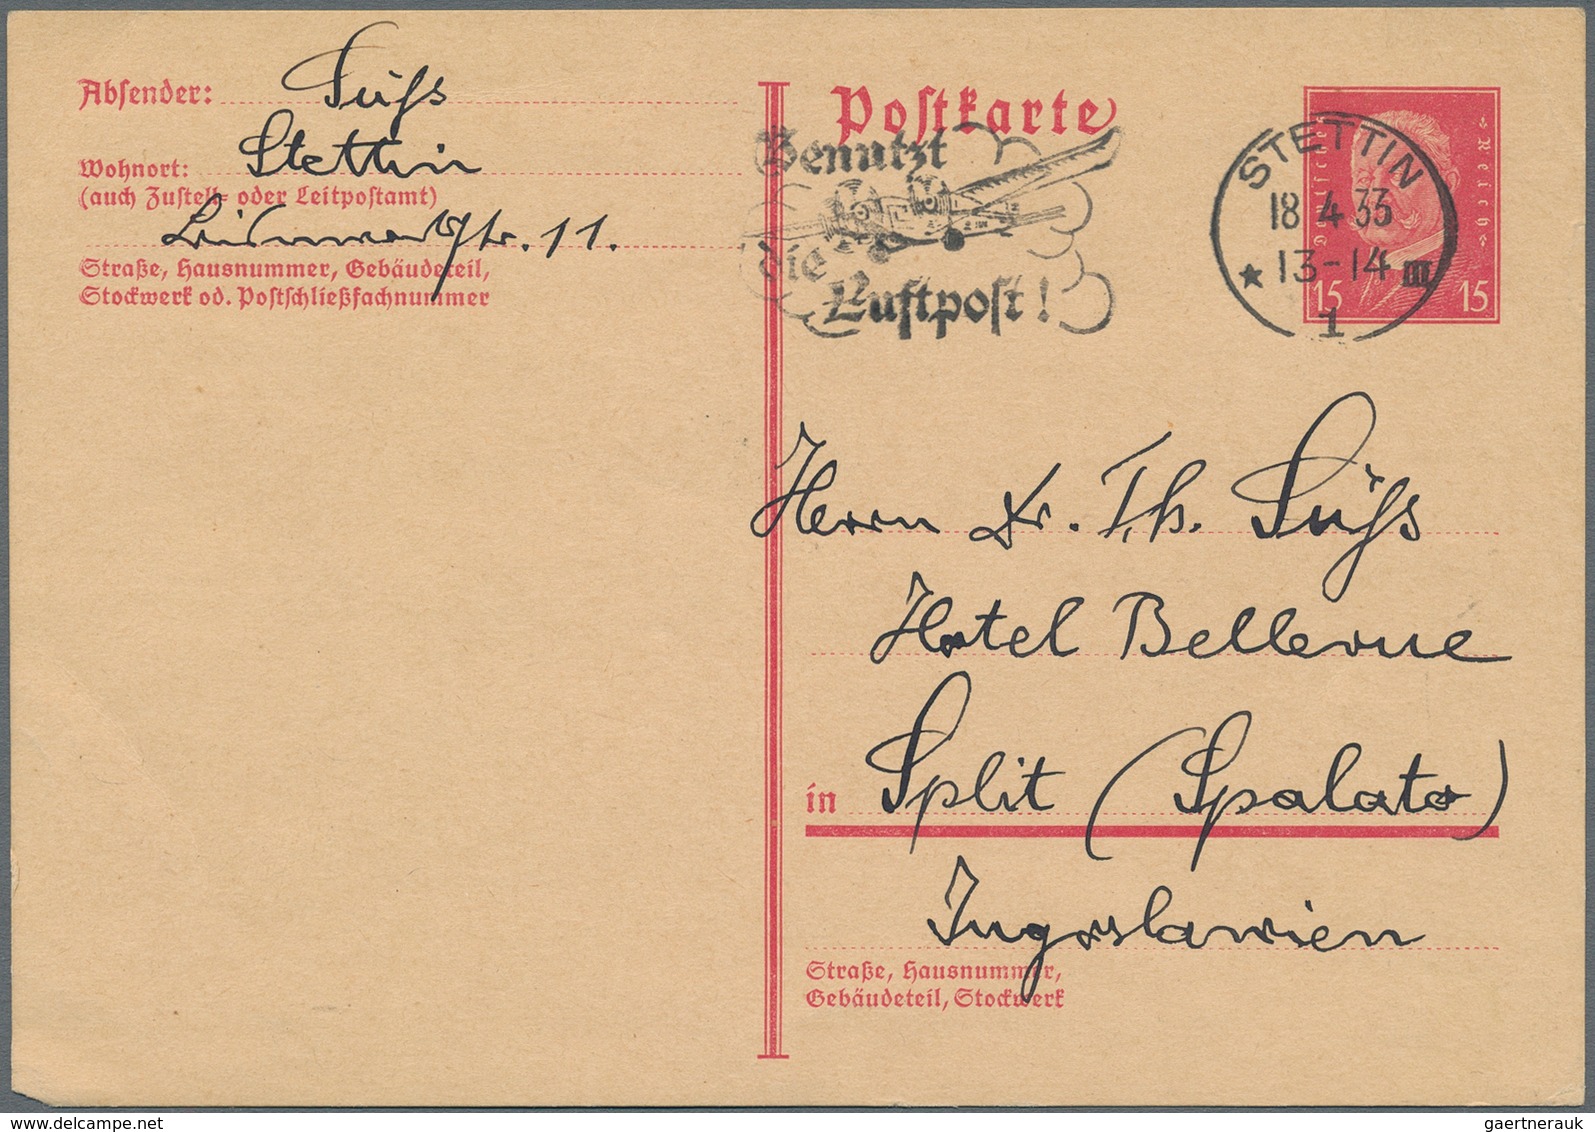 Absender: Süßs
Wohnort: Stettin
(auch Zustell- oder Leitpostamt)
11.
Straße, Hausnummer, Gebäudeteil,
Stockwerk od. Postschließfachnummer
Postkarte
Benutzt
die
Luftpost!
Deutsches Reich
15 15
STETTIN
18 4 33
13-14 m
1
Herrn Dr. Th. Süßs
Hotel Bellevue
in Split (Spalato)
Jugoslawien
Straße, Hausnummer,
Gebäudeteil, Stockwerk
gaertnerauk